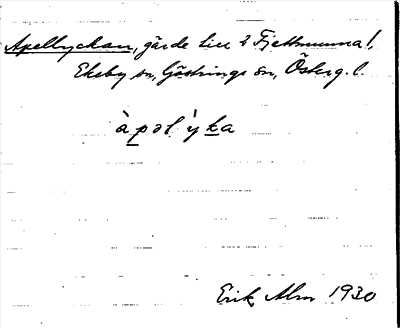 Apellyckan, gärde till 2 Fjettmunna!,
Ekeby sn, Göstrings hd, Österg. l.
àpəl`yka
Erik Alm 1930